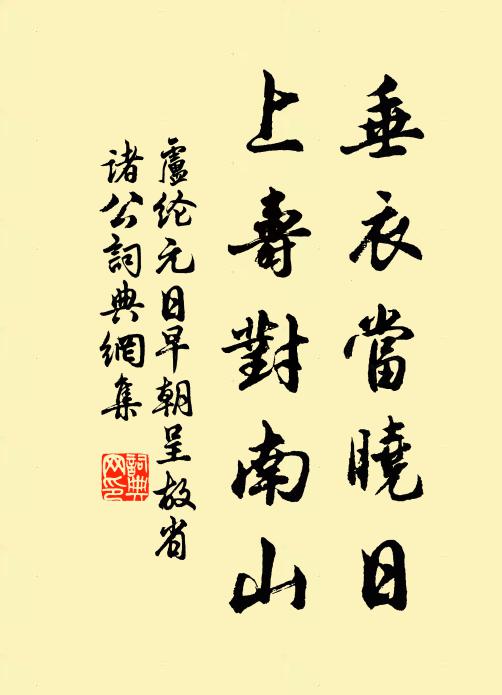 垂衣當曉日
上壽對南山
盧纶元日早朝呈故省
諸公詞典網集
詞典
网印